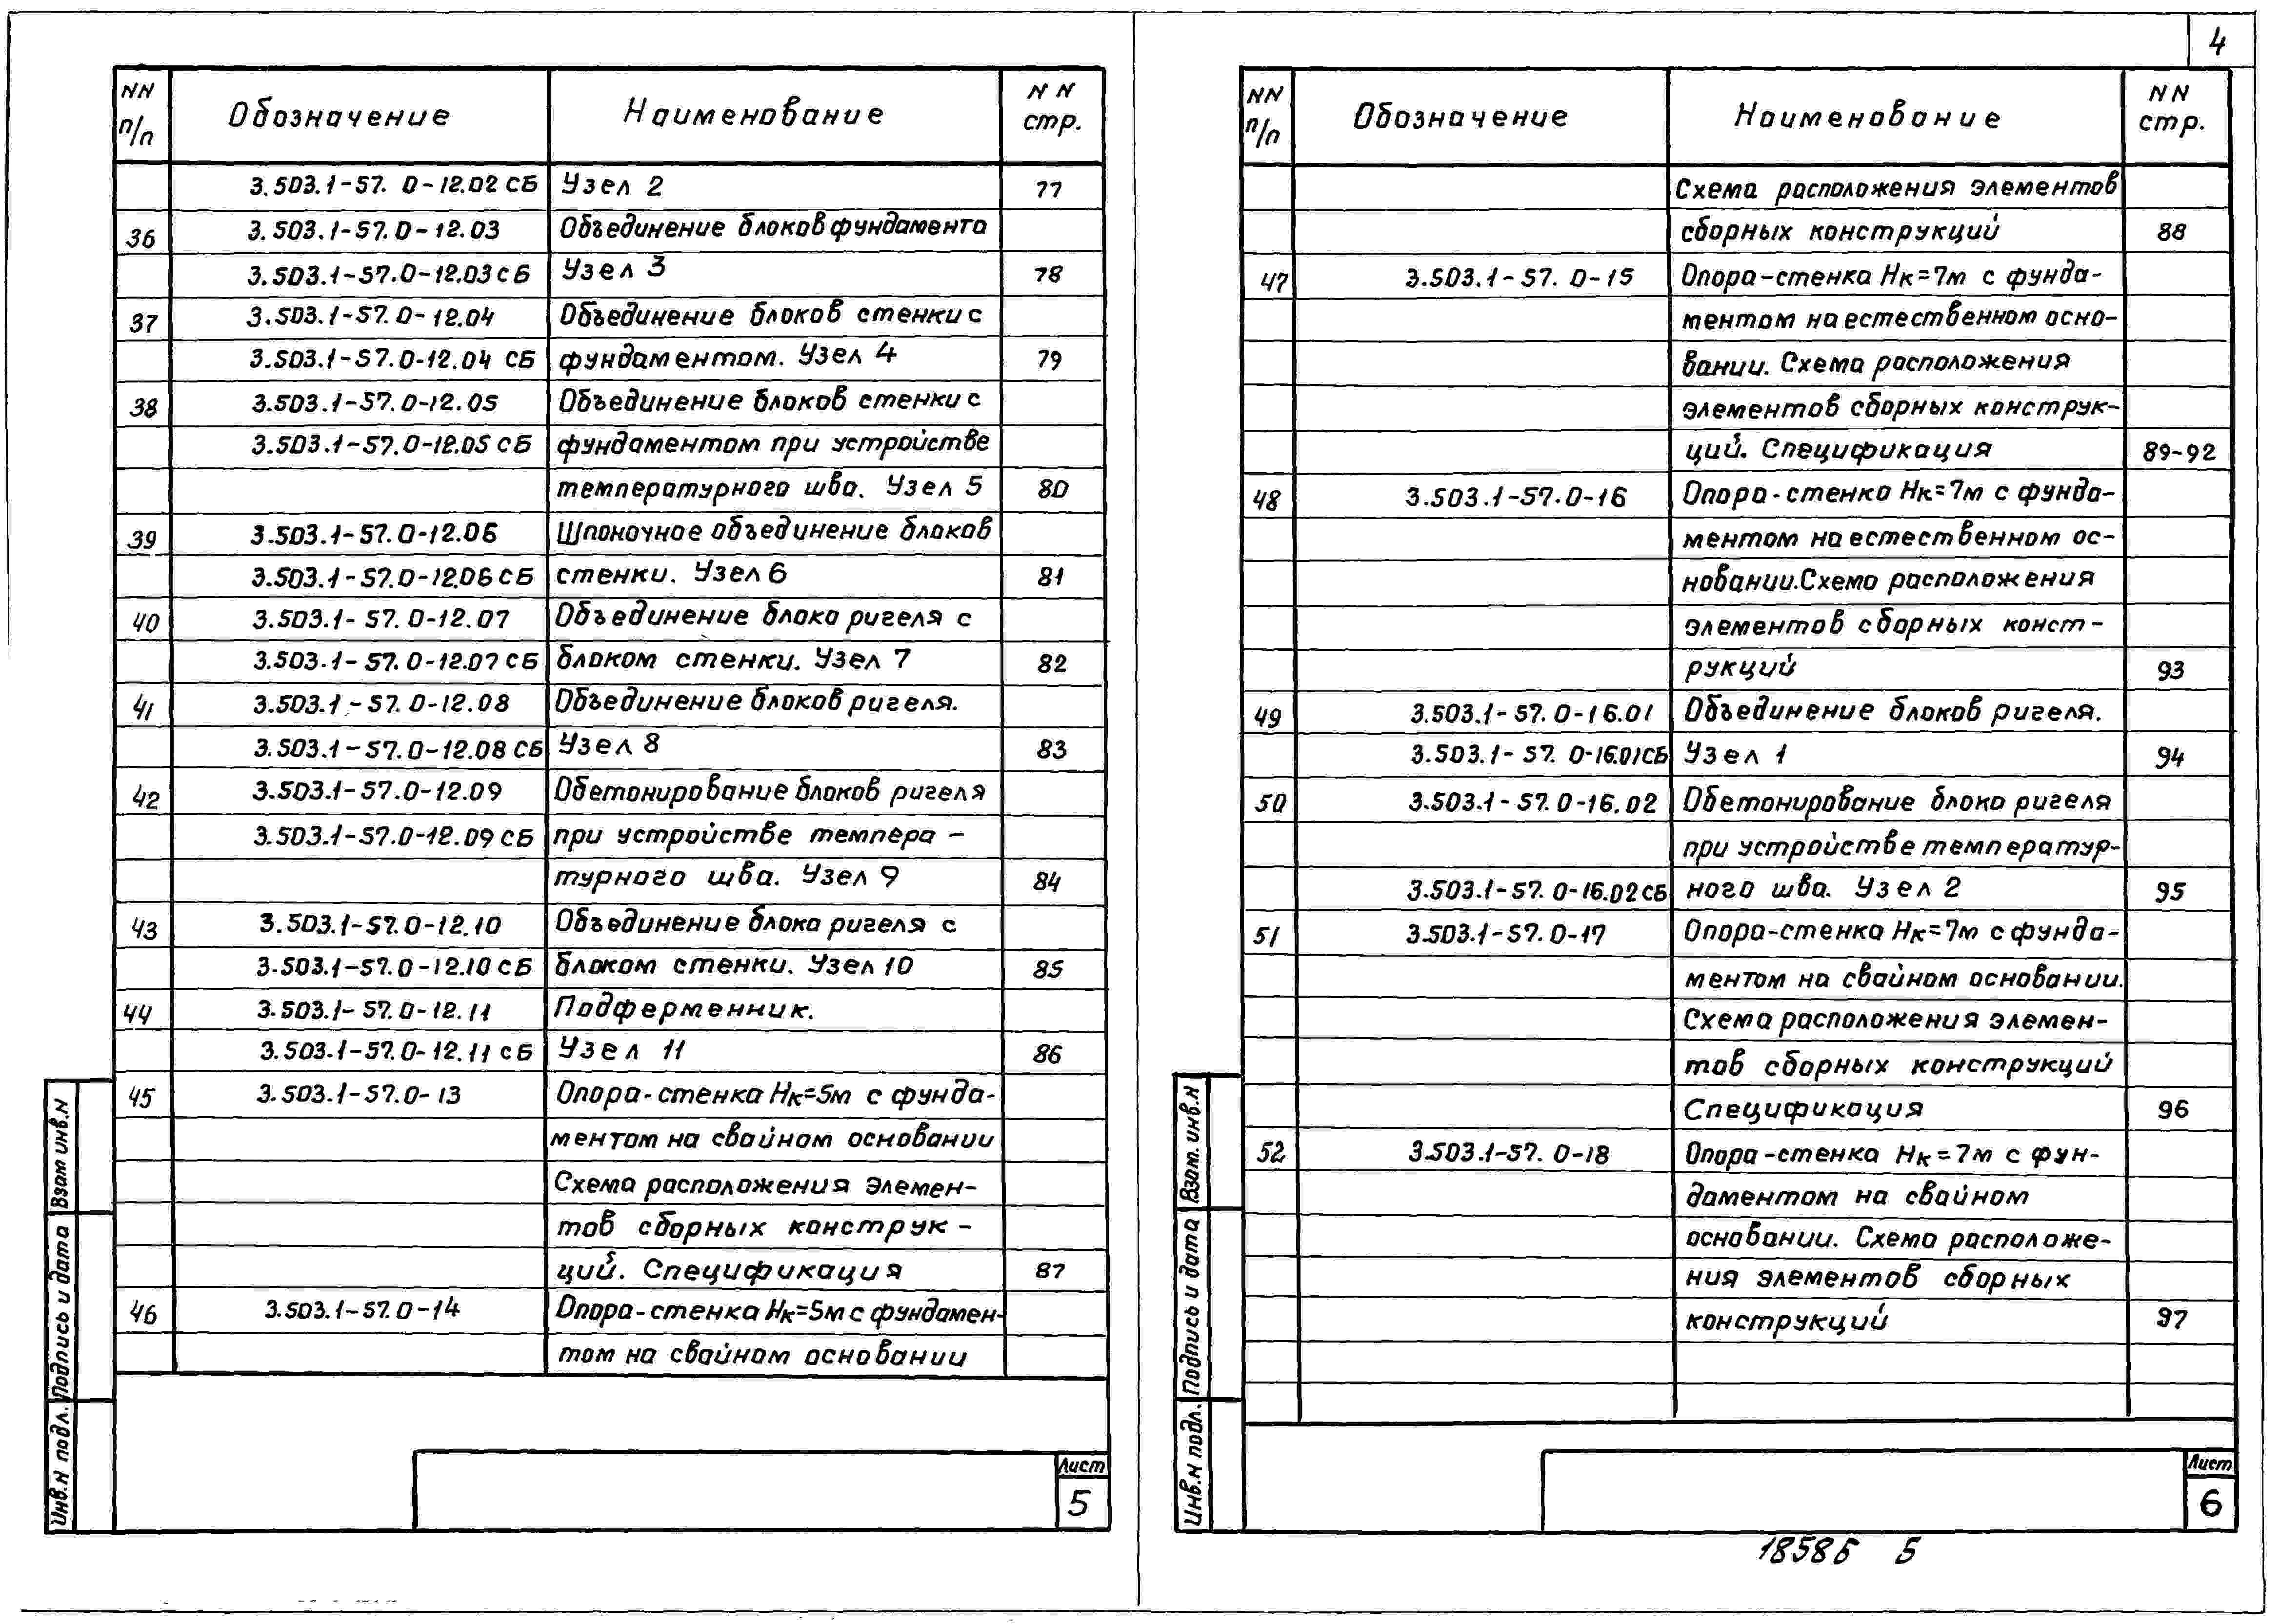 4
NN п/п Обозначение Наименование NN стр.
3.503.1-57. 0-12.02 СБ Узел 2 77
36 3.503.1-57.0-12.03 Объединение блоков фундамента
3.503.1-57.0-12.03 СБ Узел 3 78
37 3.503.1-57.0-12.04 Объединение блоков стенки с
3.503.1-57.0-12.04 СБ фундаментом. Узел 4 79
38 3.503.1-57.0-12.05 Объединение блоков стенки с
3.503.1-57.0-12.05 СБ фундаментом при устройстве
температурного шва. Узел 5 80
39 3.503.1-57.0-12.06 Шпоночное объединение блоков
3.503.1-57.0-12.06 СБ стенки. Узел 6 81
40 3.503.1-57.0-12.07 Объединение блока ригеля с
3.503.1-57.0-12.07 СБ блоком стенки. Узел 7 82
41 3.503.1-57.0-12.08 Объединение блоков ригеля.
3.503.1-57.0-12.08 СБ Узел 8 83
42 3.503.1-57.0-12.09 Обетонирование блоков ригеля
3.503.1-57.0-12.09 СБ при устройстве темпера-
турного шва. Узел 9 84
43 3.503.1-57.0-12.10 Объединение блока ригеля с
3.503.1-57.0-12.10 СБ блоком стенки. Узел 10 85
44 3.503.1-57.0-12.11 Подферменник.
3.503.1-57.0-12.11 СБ Узел 11 86
45 3.503.1-57.0-13 Опора-стенка Нк=5м с фунда-
ментом на свайном основании
Схема расположения элемен-
тов сборных конструк-
ций. Спецификация 87
46 3.503.1-57.0-14 Опора-стенка Нк=5м с фундамен-
том на свайном основании
Взам инв.N
Подпись и дата
Инв.N подл.
Лист
5
NN п/п Обозначение Наименование NN стр.
Схема расположения элементов
сборных конструкций 88
47 3.503.1-57. 0-15 Опора-стенка Нк=7м с фунда-
ментом на естественном осно-
вании. Схема расположения
элементов сборных конструк-
ций. Спецификация 89-92
48 3.503.1-57.0-16 Опора-стенка Нк=7м с фунда-
ментом на естественном ос-
новании. Схема расположения
элементов сборных конст-
рукций 93
49 3.503.1-57. 0-16.01 Объединение блоков ригеля.
3.503.1-57. 0-16.01СБ Узел 1 94
50 3.503.1-57. 0-16.02 Обетонирование блока ригеля
при устройстве температур-
3.503.1-57. 0-16.02 СБ ного шва. Узел 2 95
51 3.503.1-57. 0-17 Опора-стенка Нк=7м с фунда-
ментом на свайном основании.
Схема расположения элемен-
тов сборных конструкций
Спецификация 96
52 3.503.1-57. 0-18 Опора-стенка Нк=7м с фун-
даментом на свайном
основании. Схема расположе-
ния элементов сборных
конструкций 97
Взам. инв.N
Подпись и дата
Инв.N подл.
Лист
6
5